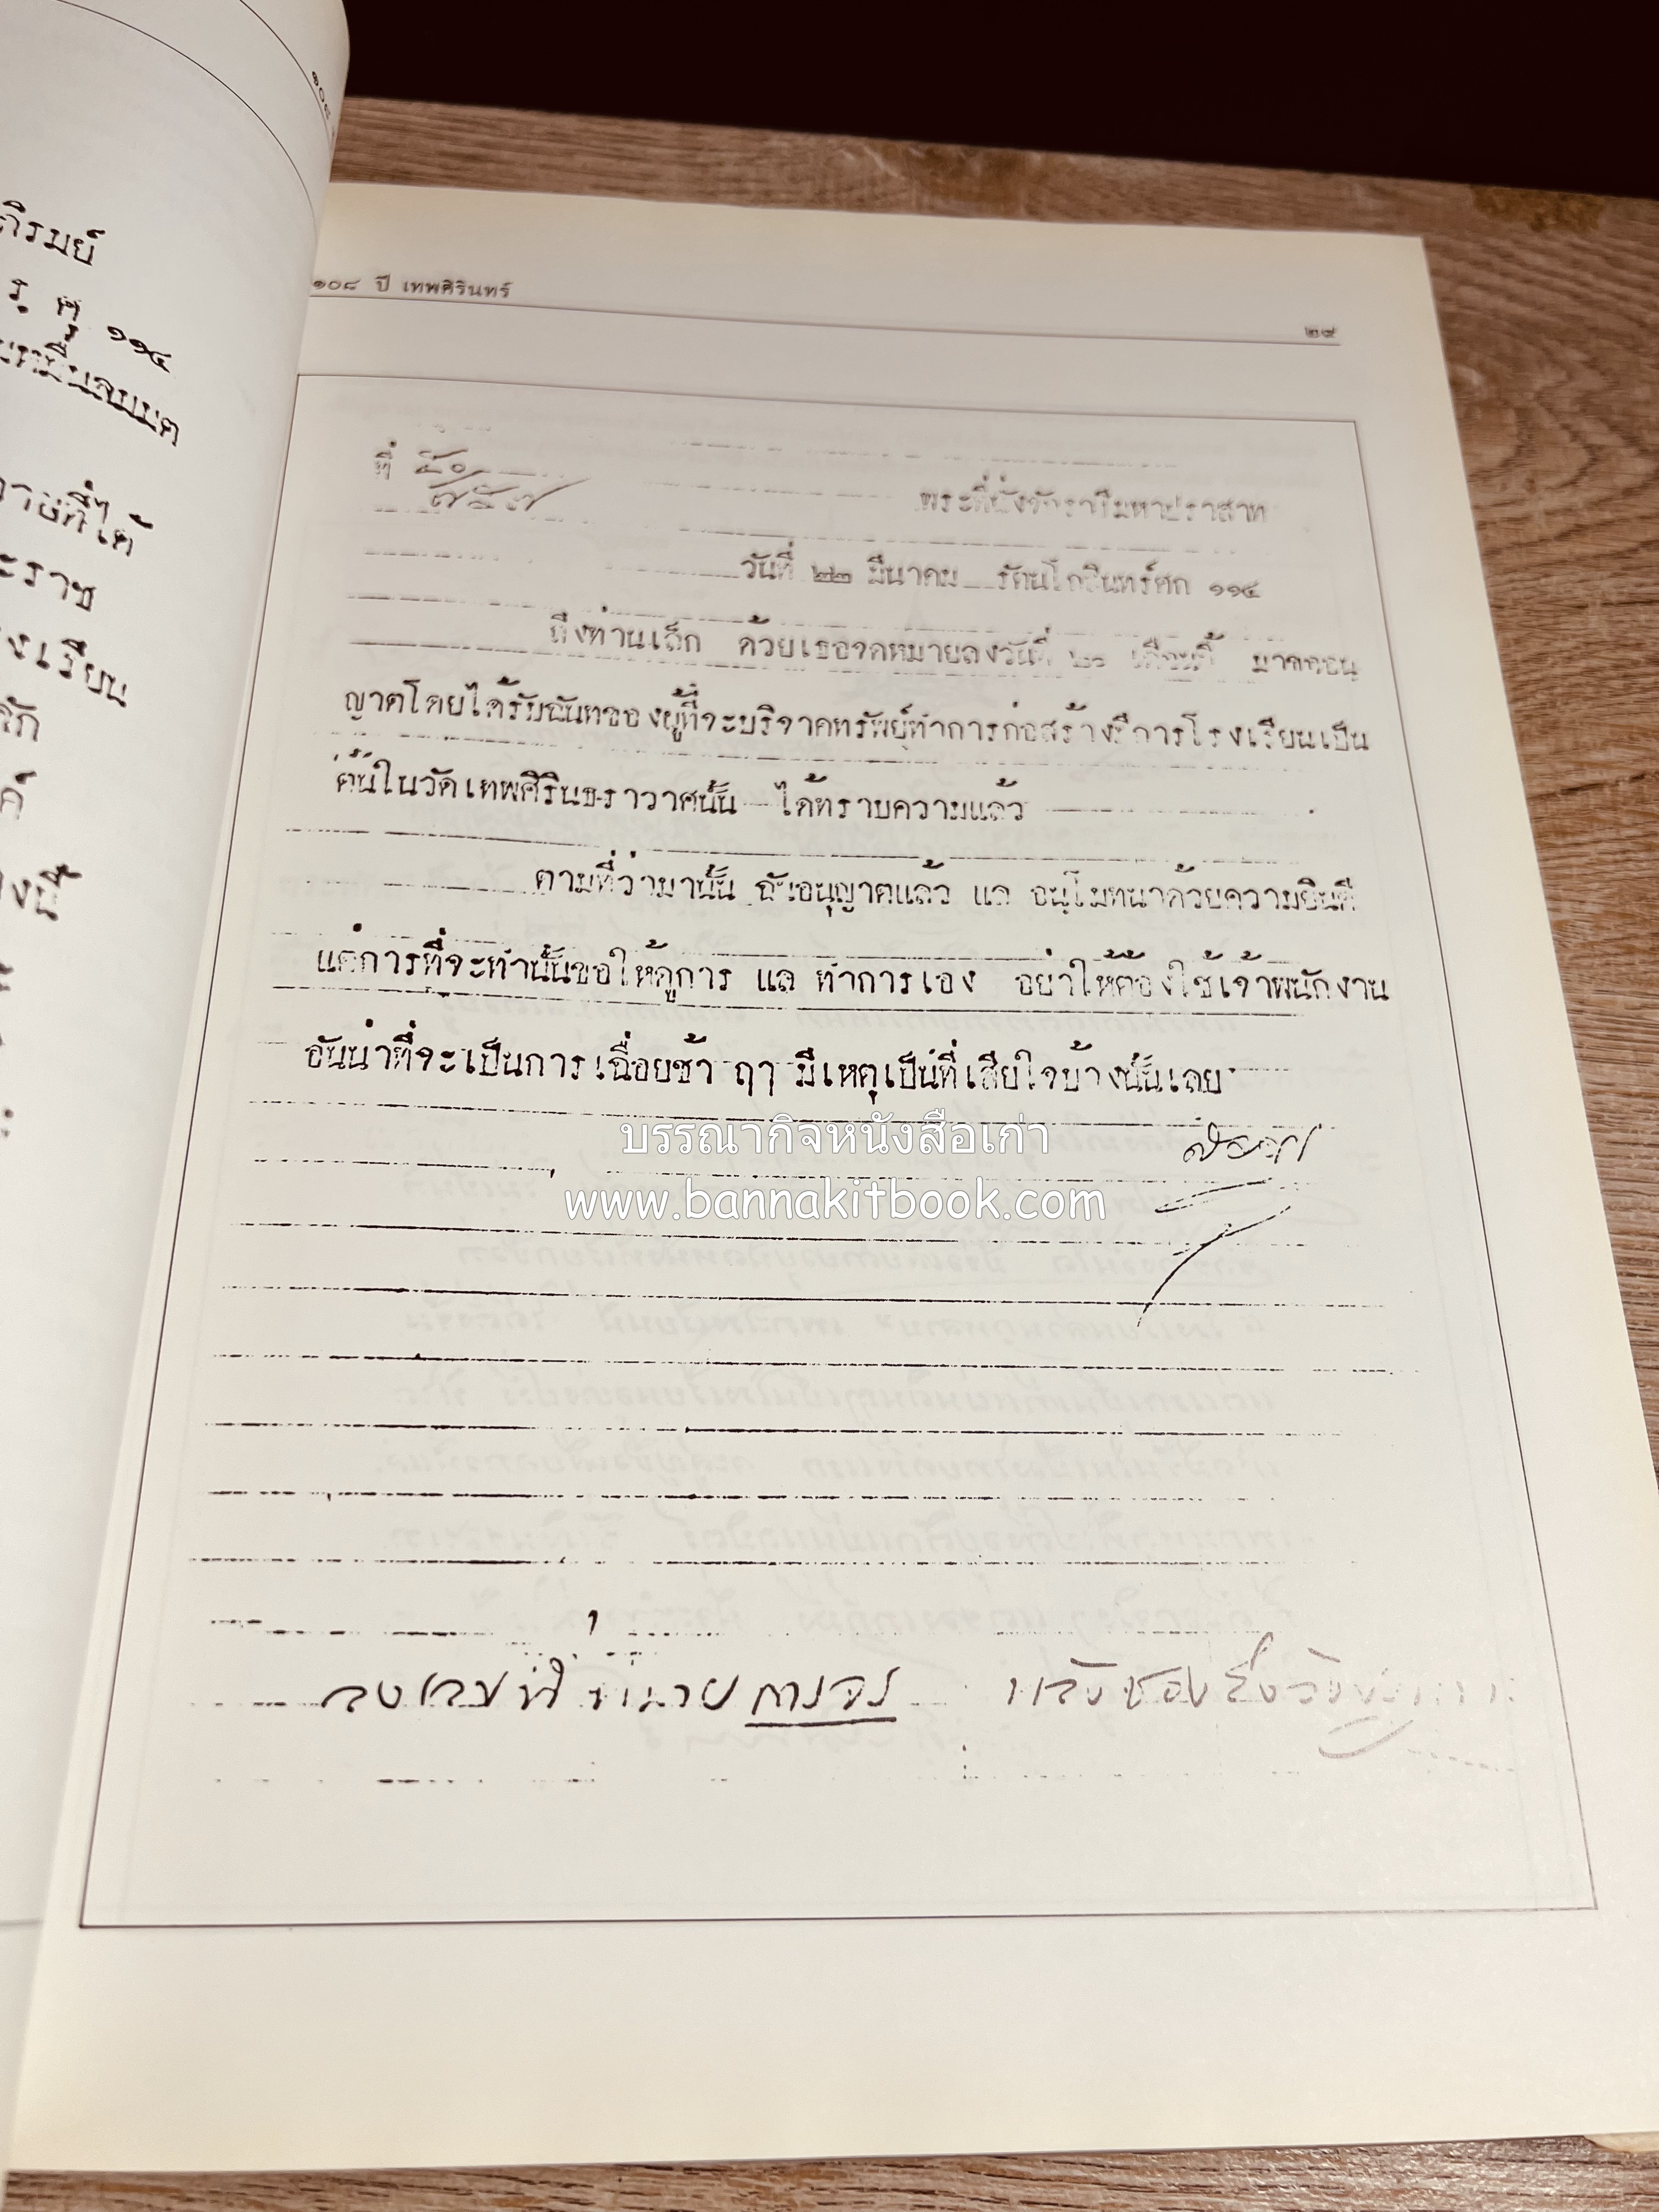 ภิรมย์
ร, ศ, ๑๑๔
๑๐๘ ปี เทพศิรินทร์
๒๙
ที่ ๕๐/๗๕๗
พระที่นั่งจักรีมหาปราสาท
วันที่ ๒๒ มีนาคม รัตนโกสินทร์ศก ๑๑๔
ถึงท่านเล็ก ด้วยเธอจดหมายลงวันที่ ๒๐ เดือนนี้ มาขออนุ
ญาตโดยได้รับฉันทของผู้ที่จะบริจาคทรัพย์ทำการก่อสร้างรีการโรงเรียนเป็น
ต้นในวัดเทพศิรินธราวาศนั้น ได้ทราบความแล้ว
ตามที่ว่ามานั้น ฉันอนุญาตแล้ว แล อนุโมทนาด้วยความยินดี
แต่การที่จะทำนั้นขอให้ดูการ แล ทำการเอง อย่าให้ต้องใช้เจ้าพนักงาน
อันน่าที่จะเป็นการเฉื่อยช้า ฤๅ มีเหตุเป็นที่เสียใจบ้างนั้นเลย
บรรณากิจหนังสือเก่า
www.bannakitbook.com